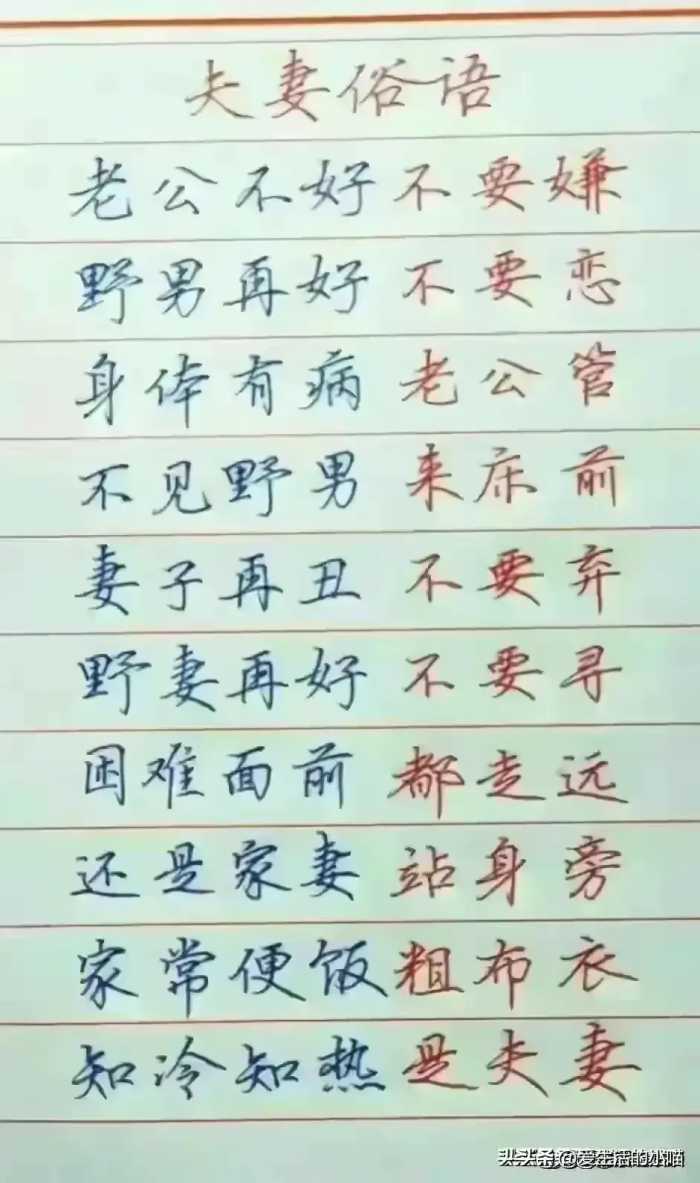 夫妻俗语
老公不好不要嫌
野男再好不要恋
身体有病老公管
不见野男来床前
妻子再丑不要弃
野妻再好不要寻
困难面前都走远
还是家妻站身旁
家常便饭粗布衣
知冷知热是夫妻
头条@爱生活的小喵